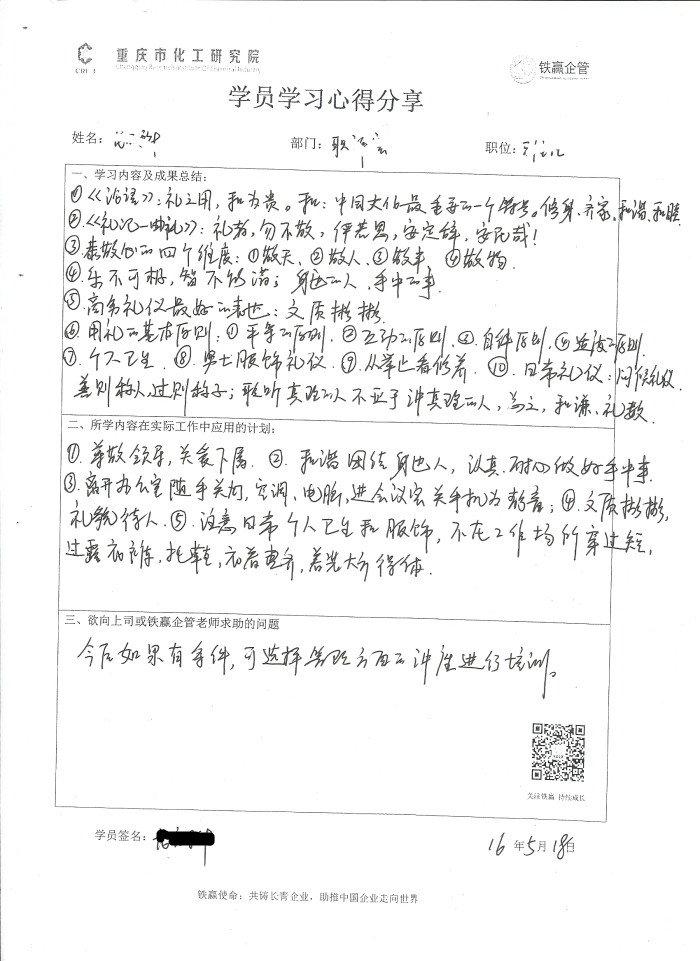 重庆市化工研究院
Chongqing Research Institute Of Chemical Industry
铁赢企管
学员学习心得分享
姓名:
部门:
职位:
一、学习内容及成果总结:
①《论语》:礼之用,和为贵。和:中国文化最重要的一个特号。修身、齐家、和谐、和睦
②《礼记—曲礼》:礼者,勿不敬,俨若思,安定辞,安民哉!
③恭敬心的四个维度:①敬天、②敬人、③敬事、④敬物.
④乐不可极,智不够诺;身边的人、手中的事.
⑤商务礼仪最好的表达:文质彬彬
⑥用礼的基本原则:①平等的原则.②互动的原则.③自律原则.④适度的原则.
⑦.个人卫生.⑧.男士服饰礼仪.⑨.从举止看修养.⑩.日常礼仪:问候礼仪
善则称人,过则称予;聆听真理的人不亚于讲真理的人,和谦、礼数.
二、所学内容在实际工作中应用的计划:
①.尊敬领导,关爱下属.②.和谐团结身边人,认真、耐心做好手中事.
③.离开办公室随手关门,空调、电脑,进会议室关手机为静音;④.文质彬彬,
礼貌待人.⑤.注意日常个人卫生和服饰,不在工作场所穿过短,
过露衣裤、拖鞋,衣着整齐,大方得体.
三、欲向上司或铁赢企管老师求助的问题
今后如果有条件,可选择等方面的讲座进行培训。
关注铁赢 持续成长
学员签名:
16年5月18日
铁赢使命:共铸长青企业,助推中国企业走向世界